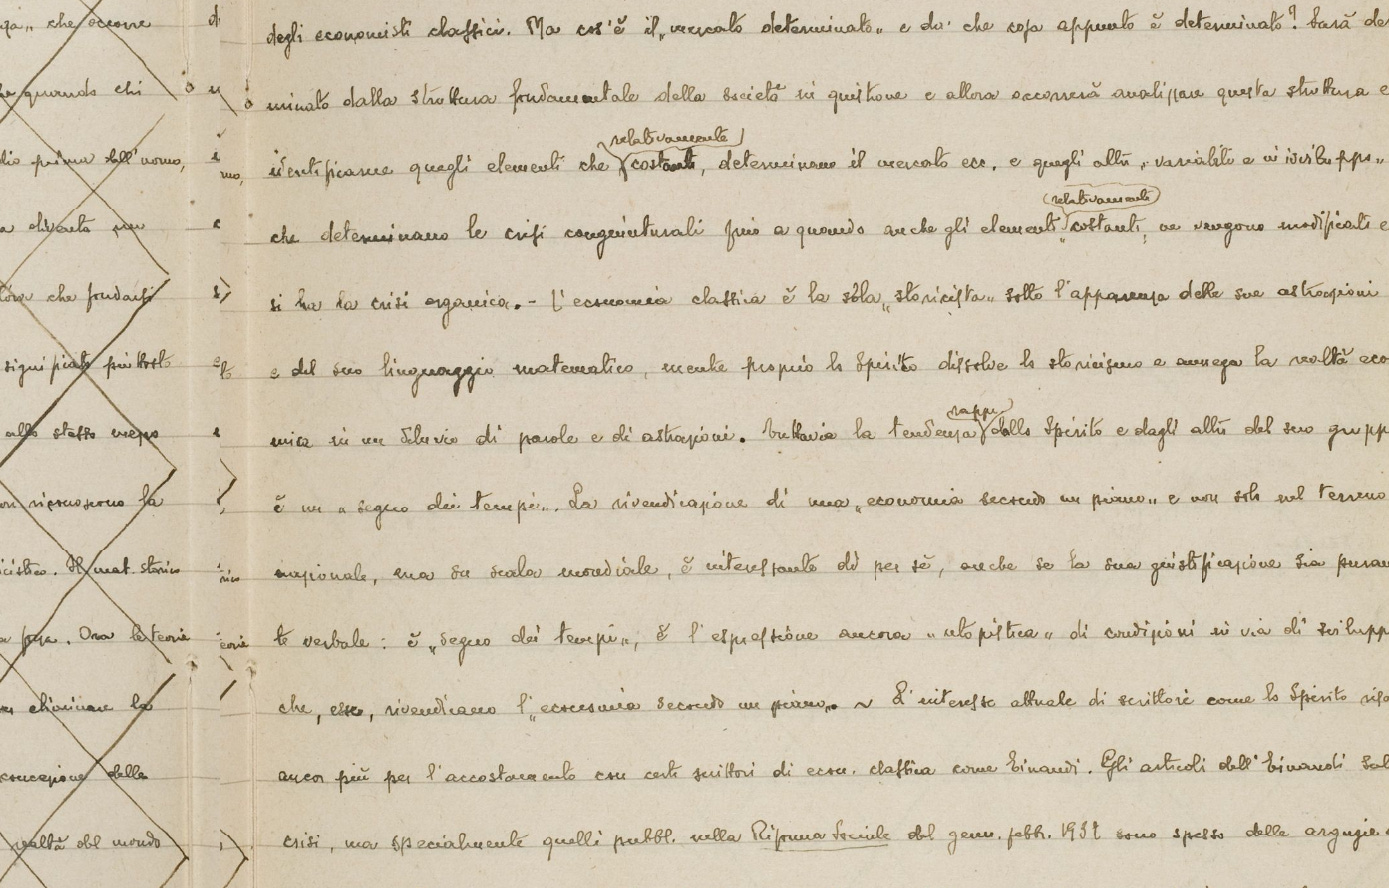 degli economisti classici. Ma cos'è il „mercato determinato„ e da' che cosa appunto è determinato? Sarà de
minato dalla struttura fondamentale della società in quistione e allora occorrerà analizzare questa struttura e
identificarne quegli elementi che relativamente costanti, determinano il mercato ecc. e quegli altri „variabili e in isviluppo„
che determinano le crisi congiunturali fino a quando anche gli elementi relativamente costanti, ne vengono modificati e
si ha la crisi organica. – L'economia classica è la sola „storicista„ sotto l'apparenza delle sue astrazioni
e del suo linguaggio matematico, mentre proprio lo Spirito dissolve lo storicismo e annega la realtà eco
mica in un diluvio di parole e di astrazioni. Tuttavia la tendenza rappr dallo Spirito e dagli altri del suo grupp
è un „segno dei tempi„. La rivendicazione di una „economia secondo un piano„ e non solo nel terreno
nazionale, ma su scala mondiale, è interessante di per sè, anche se la sua giustificazione sia puram
te verbale: è „segno dei tempi„, è l'espressione ancora „utopistica„ di condizioni in via di svilupp
che, esse, rivendicano l'„economia secondo un piano„. ~ L'interesse attuale di scrittori come lo Spirito ris
ancor più per l'accostamento con certi scrittori di econ. classica come Einaudi. Gli articoli dell'Einaudi sul
crisi, ma specialmente quelli pubbl. nella Riforma Sociale del genn. febbr. 1932 sono spesso delle arguzie
che occorre
quando chi
prima dell'uomo,
diventa
che fondarsi
piuttosto
allo stesso
riconoscono la
Il mat. storico
Ora le teorie
eliminare la
concezione della
realtà del mondo